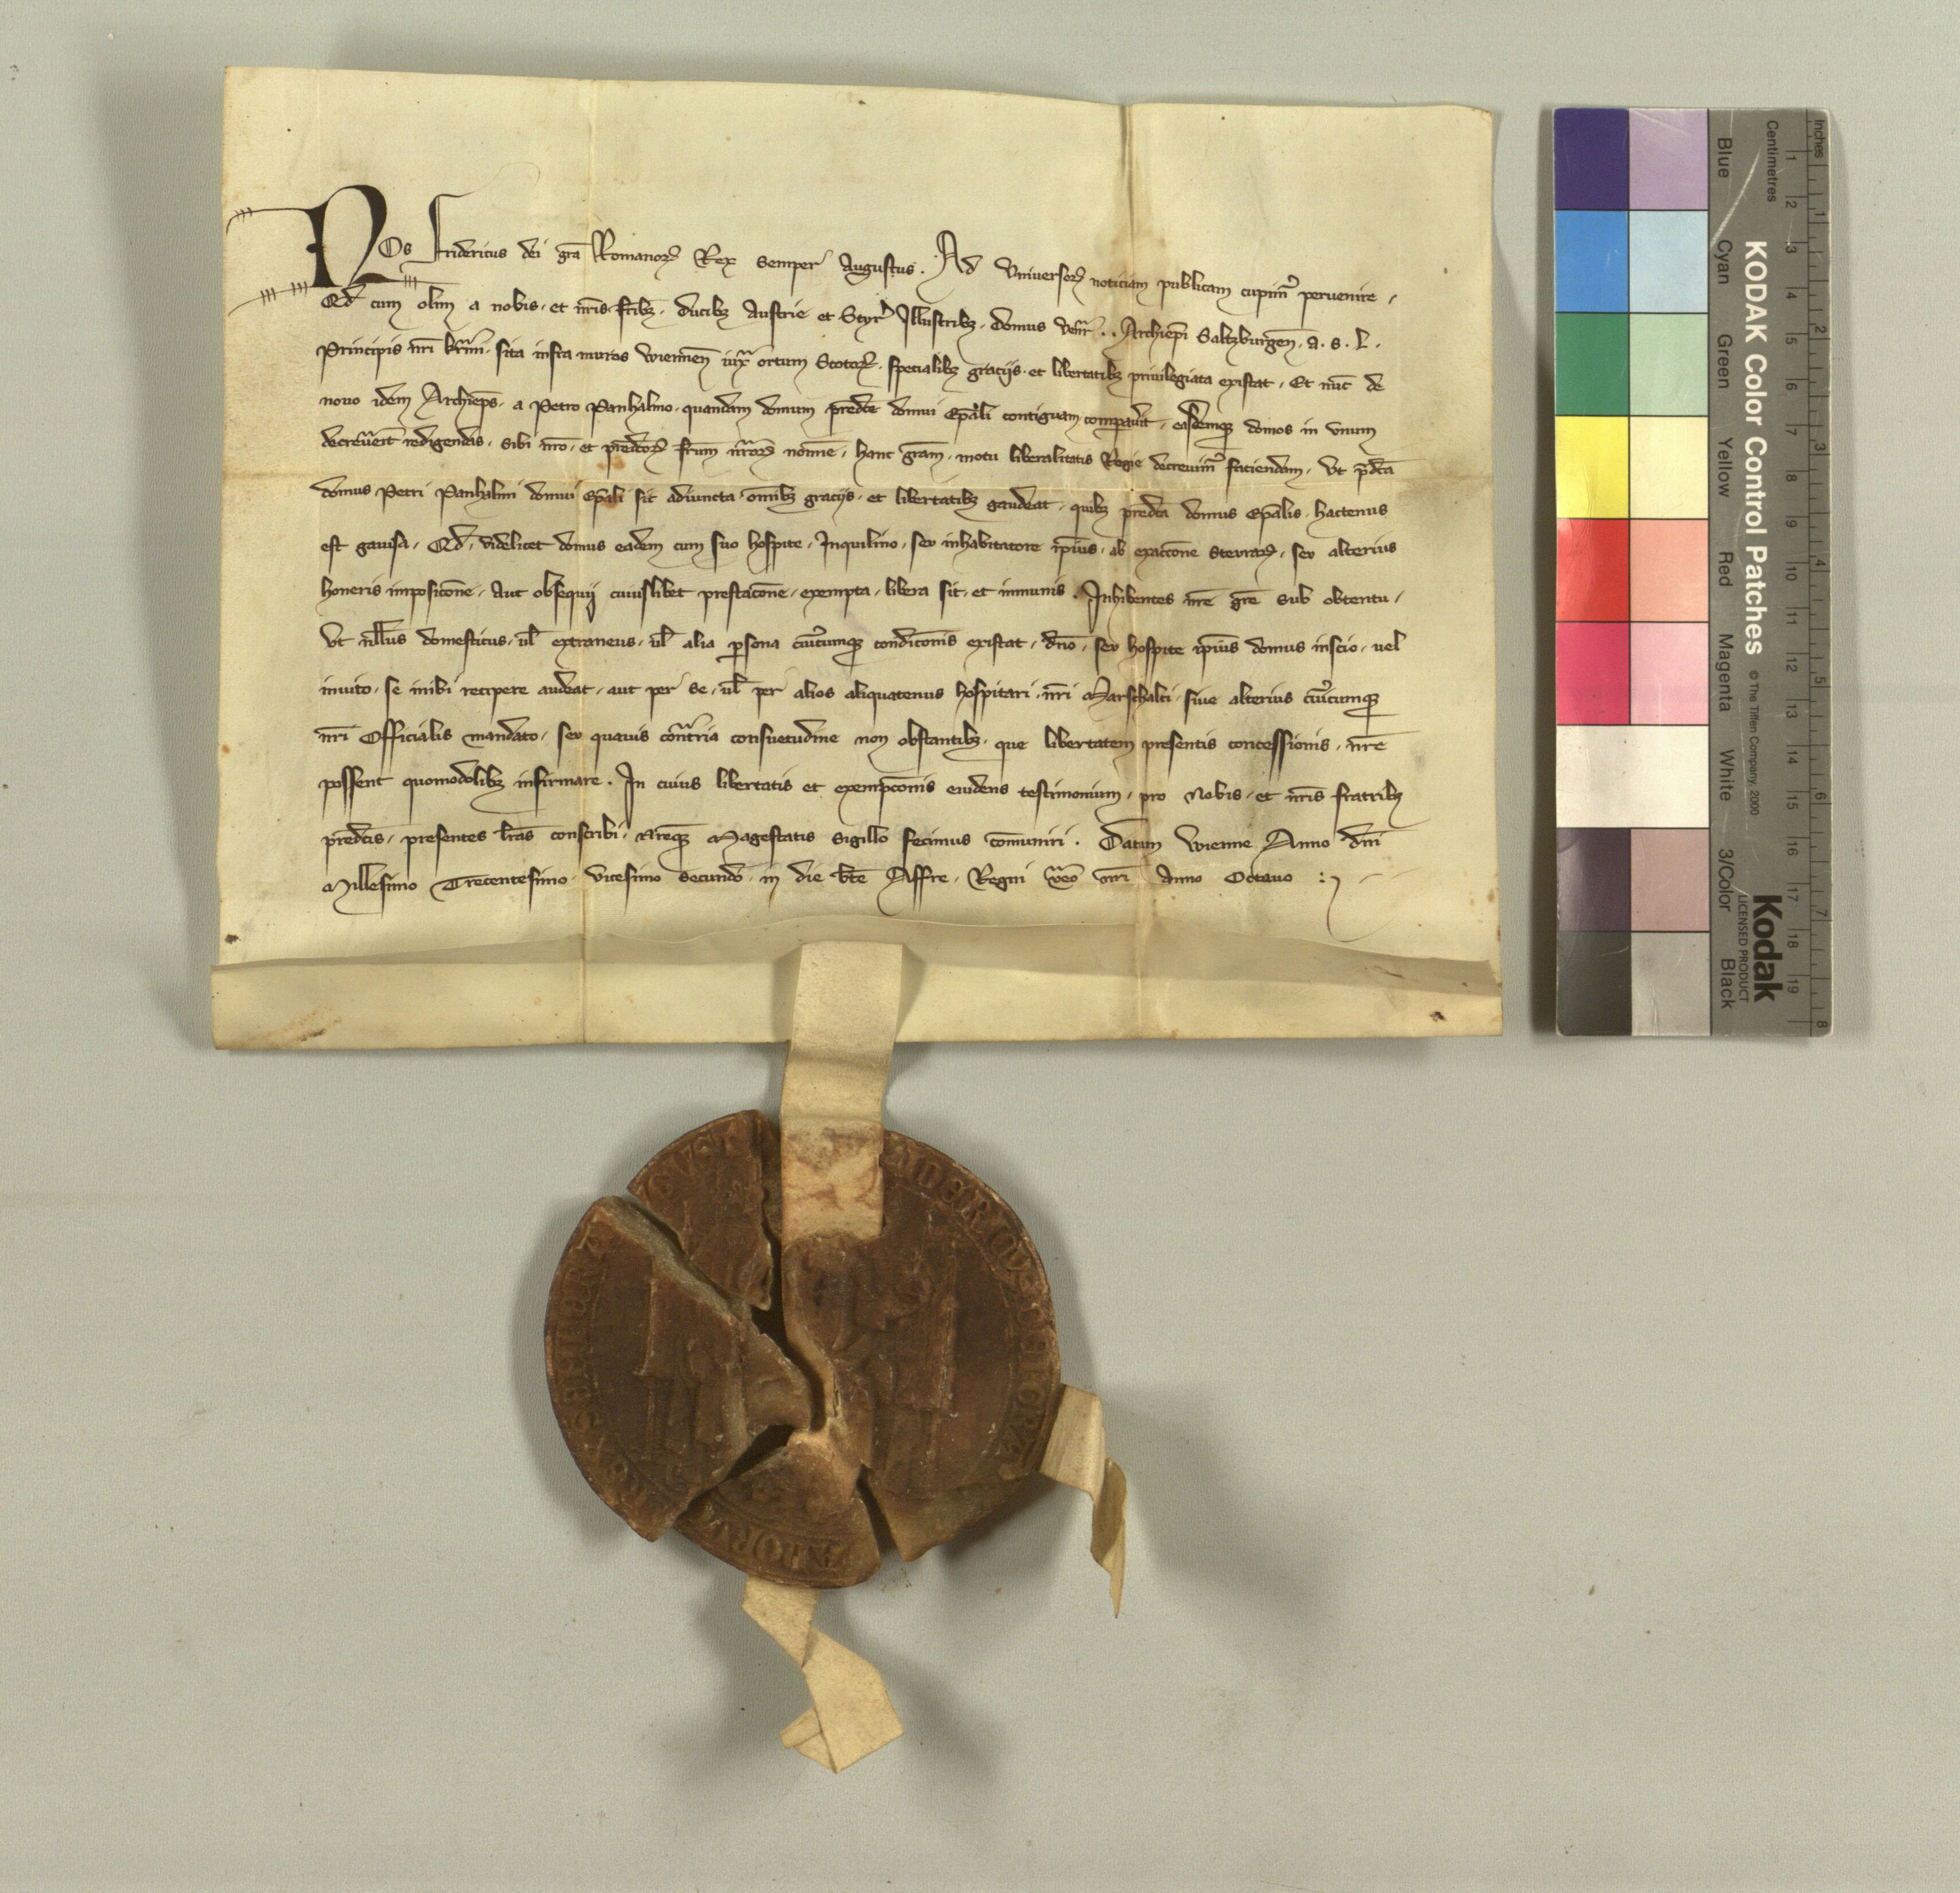 Nos Fridericus dei gra̅ Romanorꝝ Rex semper Augustus. Ad Vniversorꝝ noticiam publicam cupim᷒ peruenire,
Qd̅ cum olim a nobis et nr̅is fr̅ibꝫ, ducibꝫ Austrie et Styr̅ Illustribꝫ, domus Vener̅ .. Archiep̅i Saltzburgen̅. a. s. l.
Principis nr̅i kr̅mi, sita infra muros Wiennen̅ iux̅ ortum Scotorꝝ, specialibꝫ gracijs, et libertatibꝫ privilegiata existat, Et nu̅c de
nouo idem Archiep̅s, a Petro Panhalmo, quandam domum pred̅ce domui Ep̅ali contiguam compauit, easdemqꝫ domos in vnum
decreuerit redigendas, sibi nr̅o, et pred̅corꝝ fr̅um nr̅orꝝ no̅i̅e, hanc gr̅am, motu liberalitatis Regie decreuim᷒ faciendam, Vt p̅d̅ca
domus Petri Panhalmi domui Ep̅ali sit adiuncta om̅ibꝫ gracijs, et libertatibꝫ gaudeat, quibꝫ pred̅ca domus Ep̅alis, hactenus
est gauisa, Qd̅, videlicet domus eadem cum suo hospite, Inquilino, sev inhabitatore ip̅ius, ab exacc̅one Stevrarꝝ, sev alterius
honeris imposic̅one, Aut obsequij cuiuslibet prestac̅one, exempta, libera sit, et inmunis. Inhibentes nr̅e gr̅e sub obtentu,
Vt nll̅us domesticus, ul̅ extraneus, ul̅ alia ꝑsona cui᷒cumqꝫ condic̅onis existat, dn̅o, sev hospite ip̅ius domus inscio, uel
inuito, se inibi recipere audeat, aut per se, ul̅ per alios aliquatenus hospitari, nr̅i Marschalci, siue alterius cui᷒cumqꝫ
nr̅i Officialis mandato, sev quauis contr̅ria consuetudine non obstantibꝫ, que libertatem presentis concessionis, nr̅e
possent quomodolibꝫ infirmare. In cuius libertatis et exempc̅onis euidens testimonium, pro nobis, et nr̅is fratribꝫ
pred̅cis, presentes lr̅as conscribi, nr̅eqꝫ Magestatis sigillo fecimus co̅muniri. Datum Wienne Anno dn̅i
Millesimo Trecentesimo vicesimo secundo, in die bt̅e Affre, Regni ve̅o nr̅i Anno Octauo
KODAK Color Control Patches © The Tiffen Company, 2000
Kodak
LICENSED PRODUCT
Blue Cyan Green Yellow Red Magenta White 3/Color Black
Inches 1 2 3 4 5 6 7 8
Centimetres 1 2 3 4 5 6 7 8 9 10 11 12 13 14 15 16 17 18 19